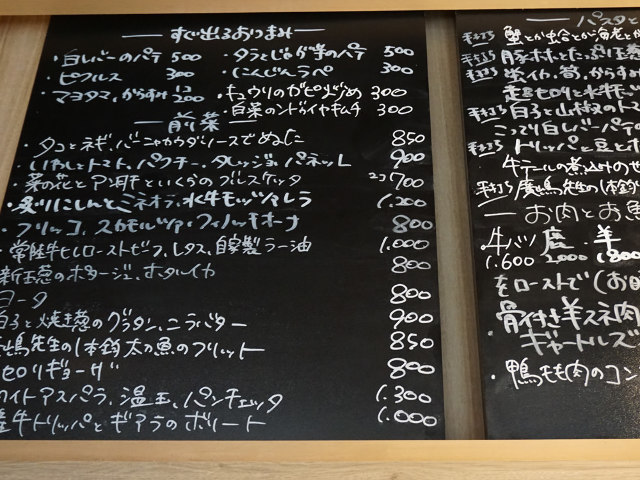 すぐ出るおつまみ
・白レバーのパテ 500 ・タラとじゃが芋のパテ 500
・ピクルス 300 ・にんじんラペ 300
・マヨタマ、からすみ 200 ・キュウリのガピ炒め 300
・白菜のンドゥイヤキムチ 300
前菜
・タコとネギ、バーニャカウダソースでぬた 850
・いわしとトマト、パクチー、タレッジョ、パネッレ 900
・菜の花とアン肝といくらのブルスケッタ 2コ700
・炙りにしんとミネオラ、水牛モッツァレラ 1.200
・プリッコ、スカモルツァ・フィノッキオーナ 800
・常陸牛ヒレローストビーフ、レタス、自家製ラー油 1.000
新玉葱のポタージュ、ホタルイカ 800
ヨータ 800
白子と焼き葱のグラタン、ニラバター 900
鹿嶋先生の1本釣太刀魚のフリット 850
セロリギョーザ 800
ホワイトアスパラ、温玉、パンチェッタ 1.300
牛トリッパとギアラのボリート 1.000
パスタと
手打ち 蟹とか蛤とか海老とか
手打ち
手打ち 白子と山椒のト
こってり白レバーパテの
手打ち トリッパと豆とホ
牛テールの煮込みのせ
手打ち 鹿嶋先生の1本釣
お肉とお魚
・牛ハツ 鹿・羊
1.600 2.000 1.800
をローストで(お
・骨付き羊スネ肉
ギャートルズ
・鴨もも肉のコン